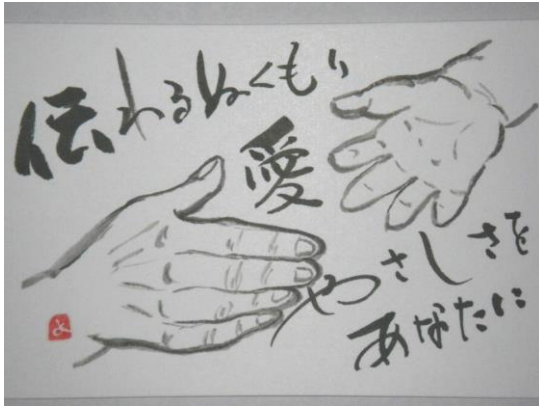 伝わるぬくもり
愛
やさしさを
あなたに
よ